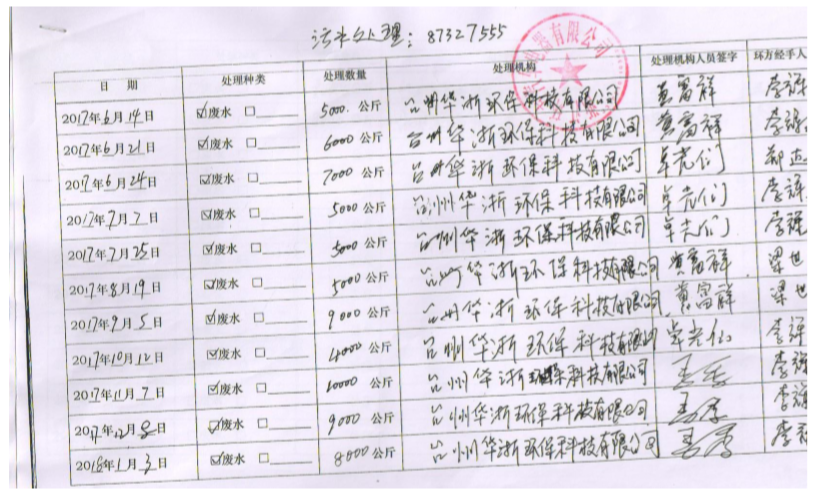 污水处理：87327555
有限公司
日 期 处理种类 处理数量 处理机构 处理机构人员签字 环方经手人
2017年6月14日 ☑废水 □ 5000 公斤 台州华浙环保科技有限公司 黄富祥 李
2017年6月21日 ☑废水 □ 6000 公斤 台州华浙环保科技有限公司 黄富祥 李
2017年6月24日 ☑废水 □ 7000 公斤 台州华浙环保科技有限公司
2017年7月7日 ☑废水 □ 5000 公斤 台州华浙环保科技有限公司 李
2017年7月25日 ☑废水 □ 5000 公斤 台州华浙环保科技有限公司 李
2017年8月19日 ☑废水 □ 5000 公斤 台州华浙环保科技有限公司 黄富祥 梁世
2017年9月5日 ☑废水 □ 9000 公斤 台州华浙环保科技有限公司 黄富祥 梁世
2017年10月12日 ☑废水 □ 公斤 台州华浙环保科技有限公司 李
2017年11月7日 ☑废水 □ 10000 公斤 台州华浙环保科技有限公司 李
2017年12月8日 ☑废水 □ 9000 公斤 台州华浙环保科技有限公司 李
2018年1月3日 ☑废水 □ 8000 公斤 台州华浙环保科技有限公司 李